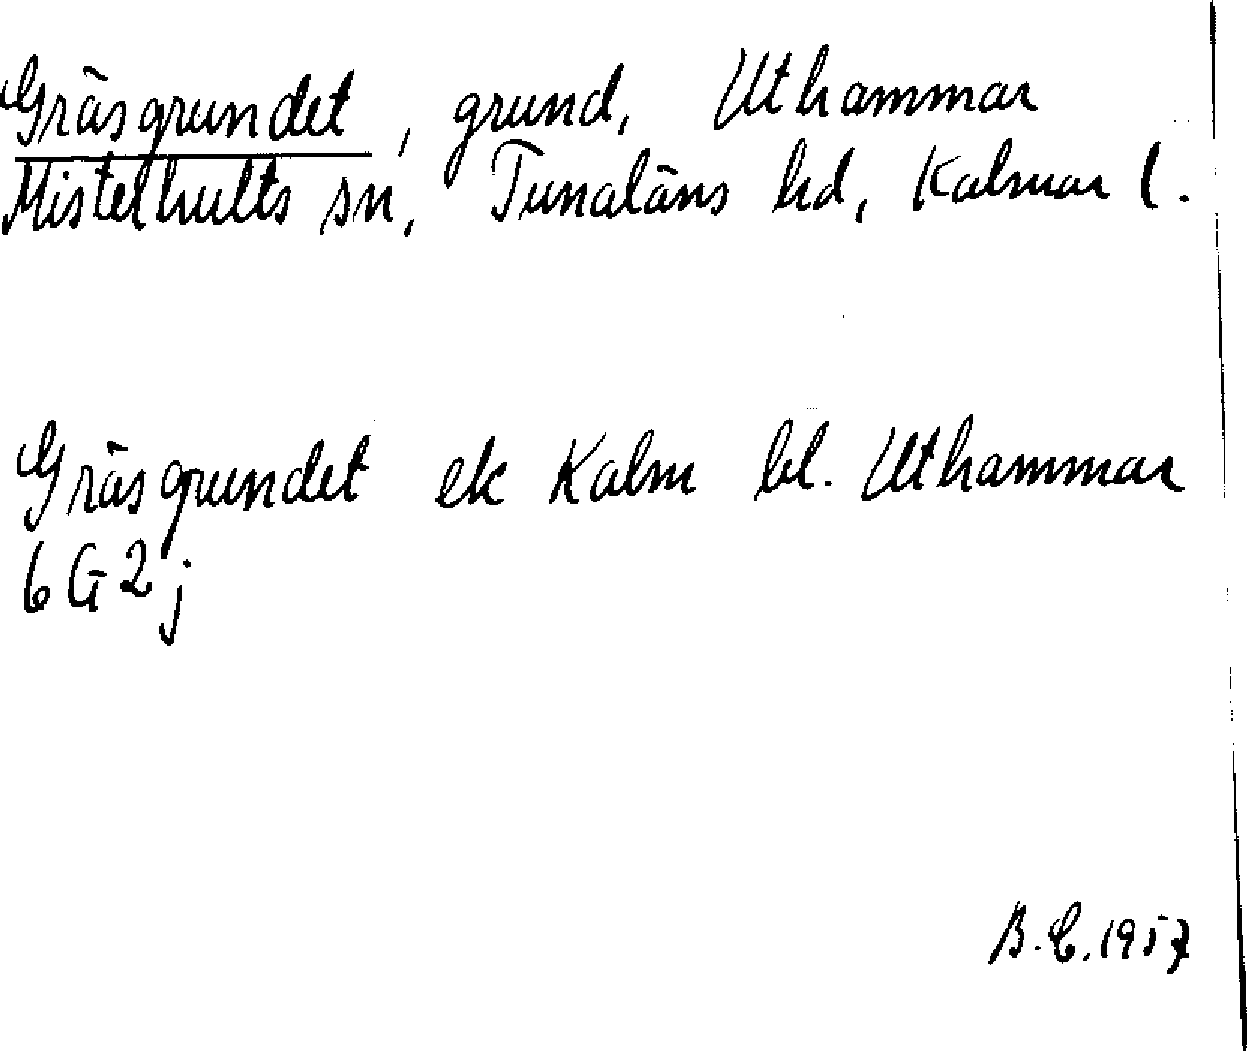 Gräsgrundet, grund, Uthammar
Mistelhults sn, Tunaläns hd, Kalmar l.
Gräsgrundet ek Kalm bl. Uthammar
6G2j
B.E. 1957